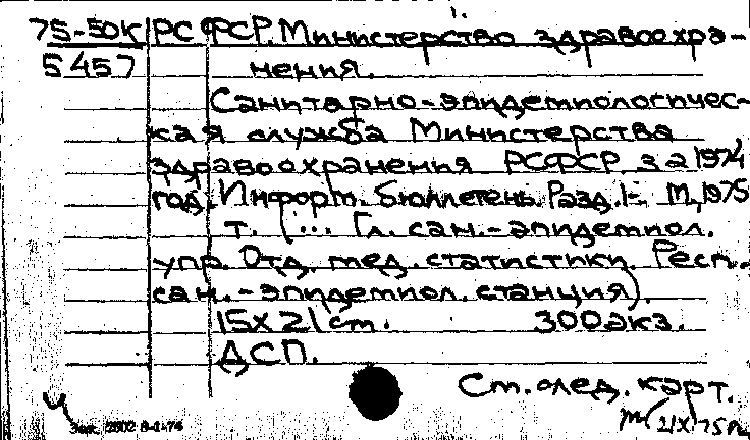 1.
75-50к РСФСР. Министерство здравоохра-
5457 нения.
Санитарно-эпидемиологичес-
кая служба Министерства
здравоохранения РСФСР за 1974
год. Информ. бюллетень. Разд. 1- М., 1975
т. (... Гл. сан.-эпидемиол.
упр. Отд. мед. статистики. Респ.
сан.-эпидемиол. станция).
15х21 см. 300 экз.
ДСП.
См. след. карт.
Зак. 2602 8-II-74
21/X 75